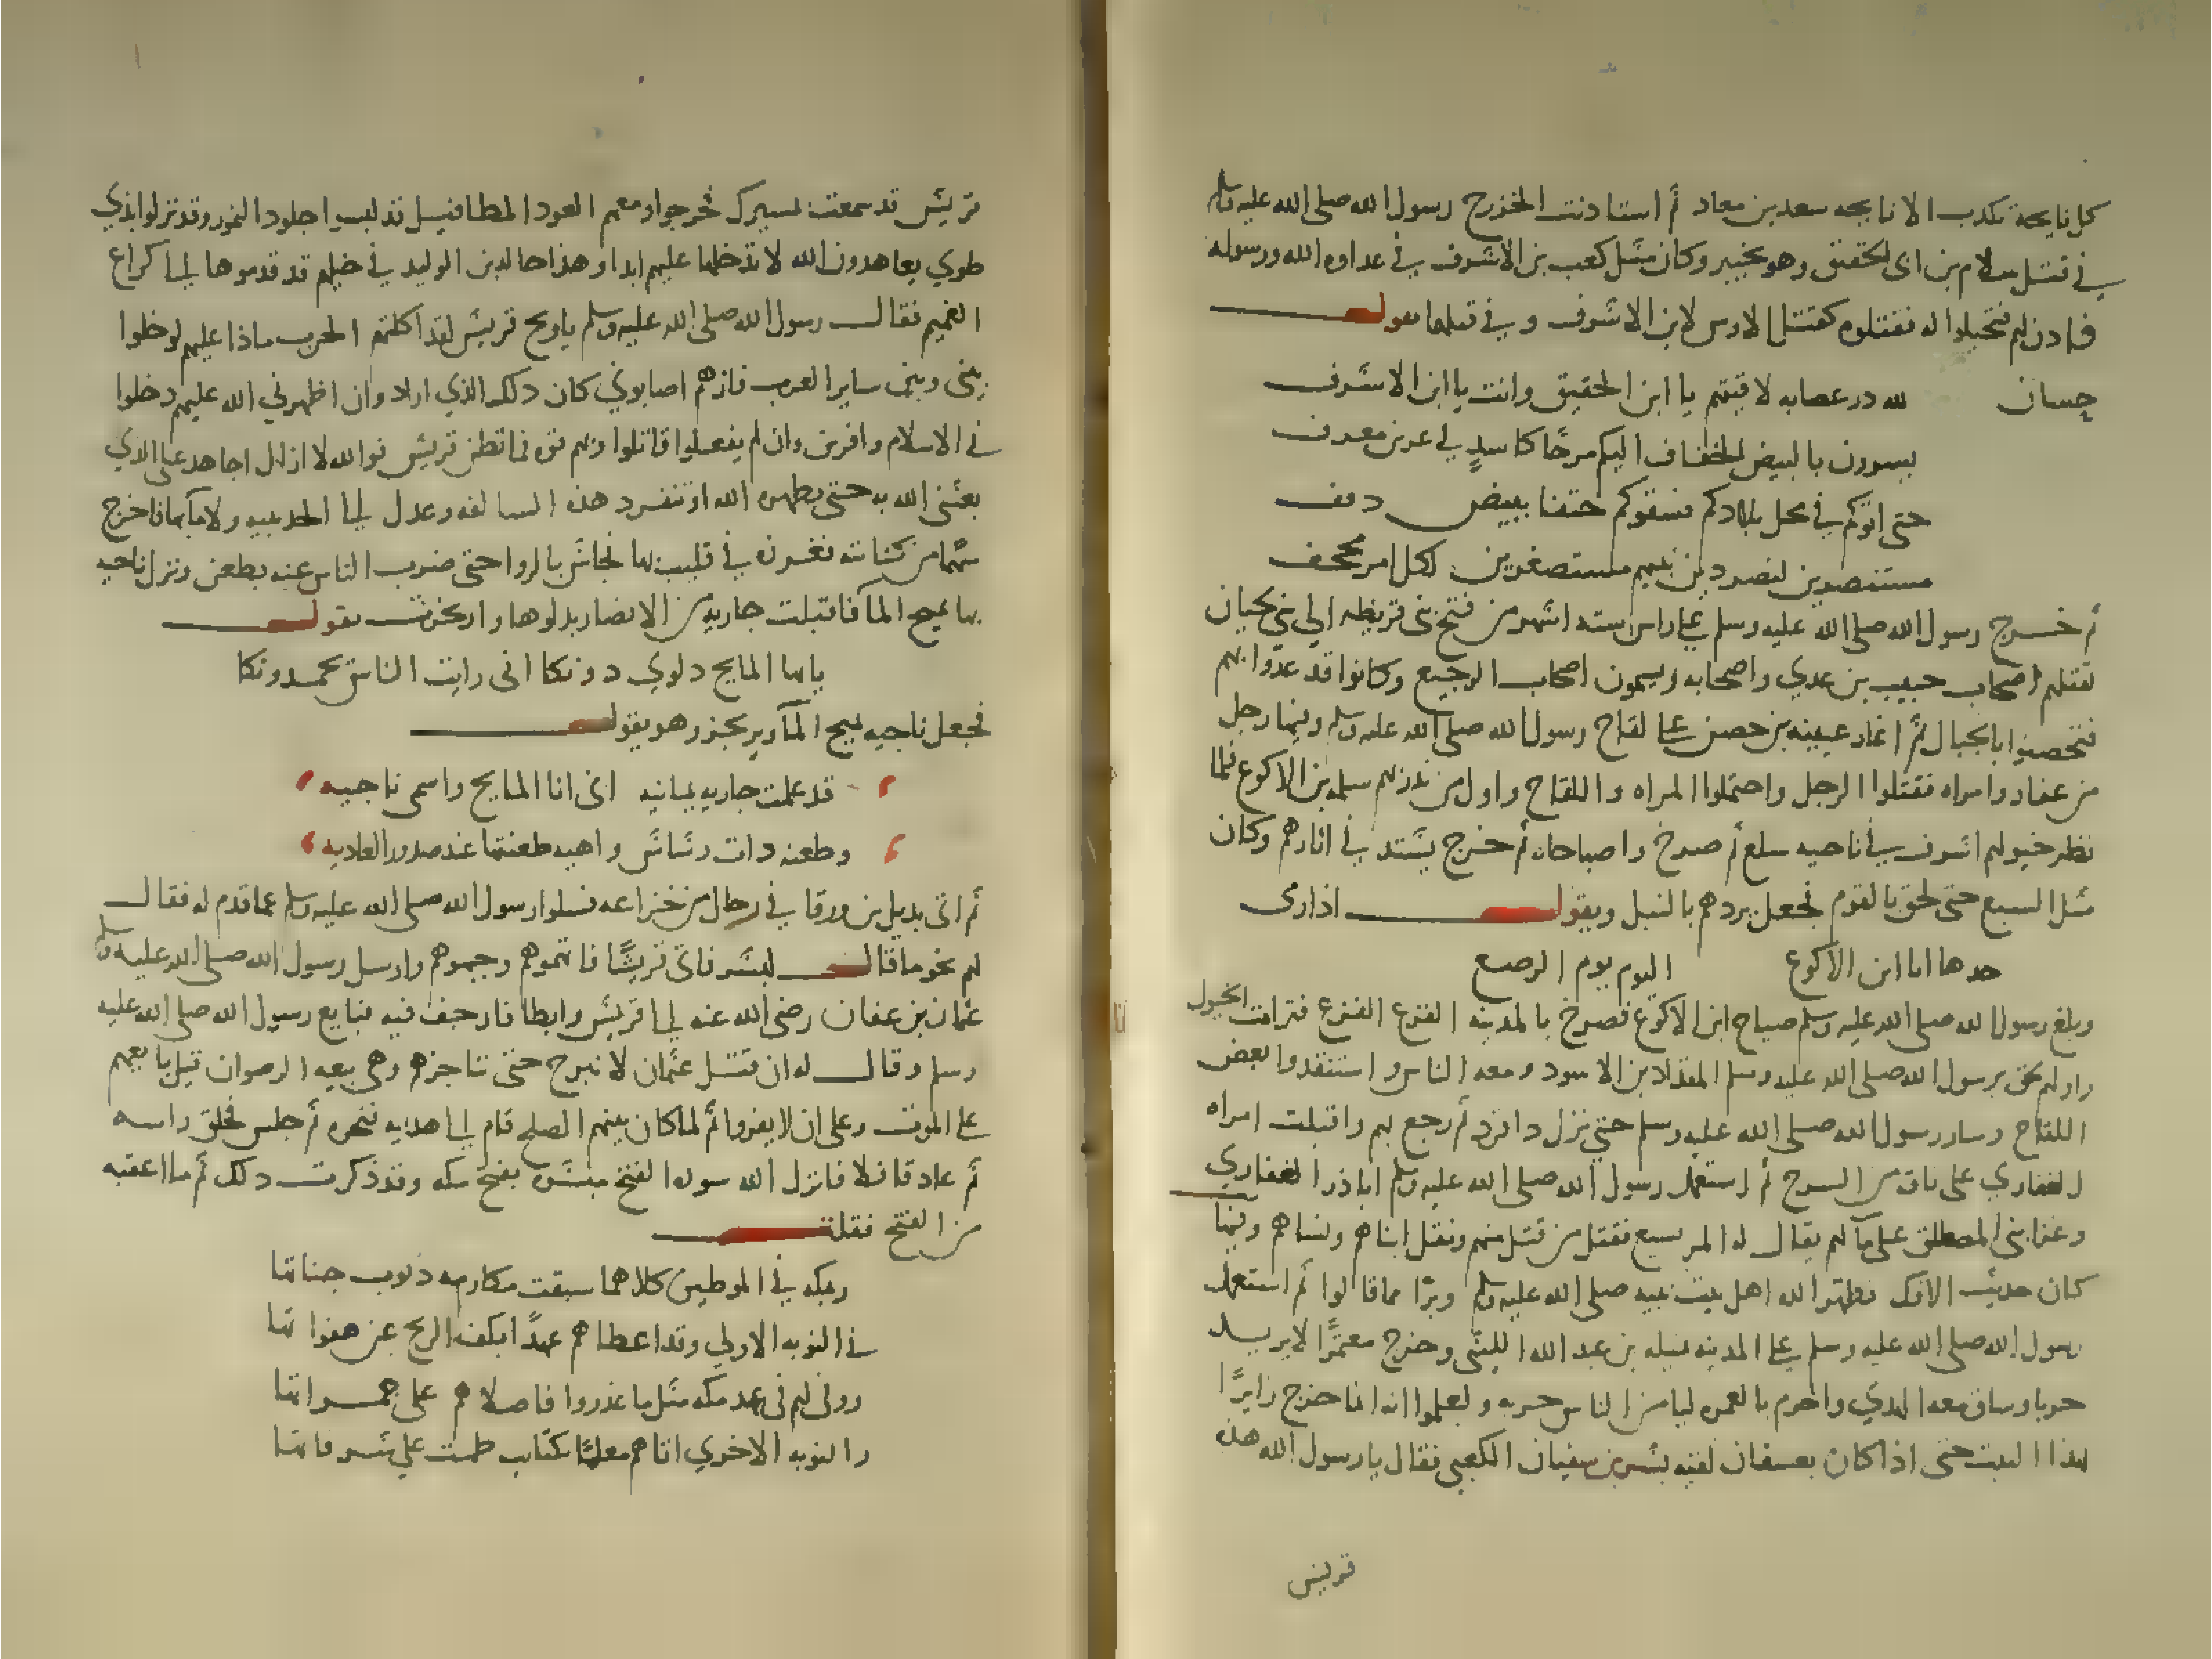 كل نايحة تكدب الا نايحه سعد بن معاد ثم استادنت الخزرج رسول الله صلى الله عليه وسلم
في قتل سلام بن ابي الحقيق وهو بخيبر وكان مثل كعب بن الاشرف في عداوة الله ورسوله
فادن لهم فتحيلوا له فقتلوه كقتل الاوس لابن الاشرف وفي قتلهما يقول
حسان لله در عصابه لاقيتهم يا ابن الحقيق وانت يا ابن الاشرف
يسرون بالبيض الخفاف اليكم مرحًا كاسدٍ في عرين معرف
حتى اتوكم في محل بلادكم فسقوكم حتفا ببيض دفف
مستنصرين لنصر دين نبيهم مستصغرين لكل امر مجحف
ثم خرج رسول الله صلى الله عليه وسلم على راس سته اشهر من فتح بني قريظه الى بني لحيان
لقتلهم اصحاب خبيب بن عدي واصحابه ويسمون اصحاب الرجيع وكانوا قد غدروا بهم
فتحصنوا بالجبال ثم اغار عيينه بن حصن على لقاح رسول الله صلى الله عليه وسلم وفيها رجل
من غفار وامراه فقتلوا الرجل واحتملوا المراه واللقاح واول من نذر بهم سلمه بن الاكوع فلما
نظر خيولهم اشرف في ناحيه سلع ثم صرخ واصباحاه ثم خرج يشتد في اثارهم وكان
مثل السبع حتى لحق بالقوم فجعل يردهم بالنبل ويقول اذا رمى
خدها انا ابن الاكوع اليوم يوم الرضع
وبلغ رسول الله صلى الله عليه وسلم صياح ابن الاكوع فصرخ بالمدينه الفزع الفزع فترامت الخيول
واولهم لحق برسول الله صلى الله عليه وسلم المقداد بن الاسود ومعه الناس واستنقدوا بعض
اللقاح وسار رسول الله صلى الله عليه وسلم حتى نزل دا قرد ثم رجع بهم واقبلت امراه
الغفاري على ناقه من السرح ثم استعمل رسول الله صلى الله عليه وسلم اباذر الغفاري
وغزا بني المصطلق على ما لهم يقال له المريسيع فقتل من قتل منهم ونقل ابناهم ونساهم وفيها
كان حديث الافك فطهر الله اهل بيت نبيه صلى الله عليه وسلم وبرا مما قالوا ثم استعمل
رسول الله صلى الله عليه وسلم على المدينه نميله بن عبد الله الليثي وخرج معتمرًا لا يريد
حربا وساق معه الهدي واحرم بالعمره ليامن الناس حربه وليعلموا انه انما خرج زايرًا
لهذا البيت حتى اذا كان بعسفان لقيه بشر بن سفيان الكعبي فقال يا رسول الله هذه
قريش
قريش قد سمعت لمسيرك فخرجوا ومعهم العود المطافيل قد لبسوا جلود النمور وقد نزلوا بذي
طوي يعاهدون الله لا تدخلها عليهم ابدا وهذا خالد بن الوليد في خيلهم قد قدموها الى كراع
الغميم فقال رسول الله صلى الله عليه وسلم يا ويح قريش لقد اكلتهم الحرب ماذا عليهم لو خلوا
بيني وبين ساير العرب فان هم اصابوني كان دلك الذي ارادوا وان اظهرني الله عليهم دخلوا
في الاسلام وافرين وان لم يفعلوا قاتلوا وبهم قوه فما تظن قريش فوالله لا ازال اجاهد على الذي
بعثني الله به حتى يظهره الله او تنفرد هذه السالفه وعدل الى الحديبيه ولا ما بها فاخرج
سهما من كنانته فغرزه في قليب بها فجاش بالروا حتى ضرب الناس عنه بطعن ونزل ناجيه
بها يميح الما فاقبلت جاريه من الانصار بدلوها وارتجزت تقول
يا يها المايح دلوي دونكا اني رايت الناس يحمدونكا
فجعل ناجيه يميح الما ويرتجز وهو يقول
قد علمت جاريه يمانيه اني انا المايح واسمي ناجيه
وطعنه دات رشاش واهيه طعنتها عند صدور العاديه
ثم اتى بديل بن ورقا في رجال من خزاعه فسلوا رسول الله صلى الله عليه وسلم عما قدم له فقال
لهم نحو ما قال لبشر فاتى قريشًا فاتهموهم وجبهوهم وارسل رسول الله صلى الله عليه وسلم
عثمان بن عفان رضي الله عنه الى قريش وابطا فارجف فيه فبايع رسول الله صلى الله عليه
وسلم وقال له ان قتل عثمان لا نبرح حتى نناجزهم وهي بيعه الرضوان قيل بايعهم
على الموت وعلى ان لا يفروا ثم لما كان بينهم الصلح قام الى هديه فنحره ثم جلس فحلق راسه
ثم عاد قافلا فانزل الله سوره الفتح مبشره بفتح مكه وقد ذكرت دلك ثم ما اعقبه
من الفتح فقلت
وبمكه في الموطنين كلاهما سبقت مكارمه دنوب جناتها
في النوبه الاولى وقد اعطاهم عهدًا يكف الريح عن هفواتها
ووفى لهم في عهد مكه مثل ما غدروا فاصلاهم على جمراتها
والنوبه الاخري اتاهم معلمًا بكتايب طمت على شرفاتها